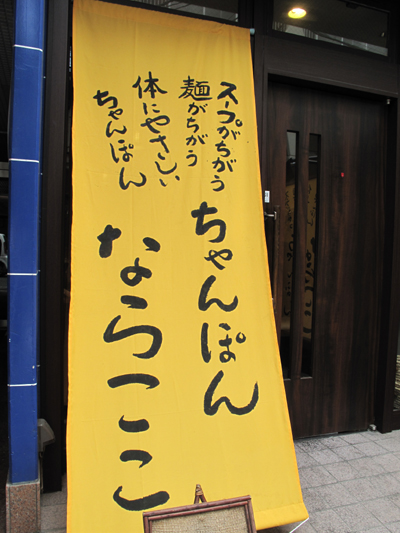 スープがちがう
麺がちがう
体にやさしい
ちゃんぽん
ちゃんぽん
ならここ